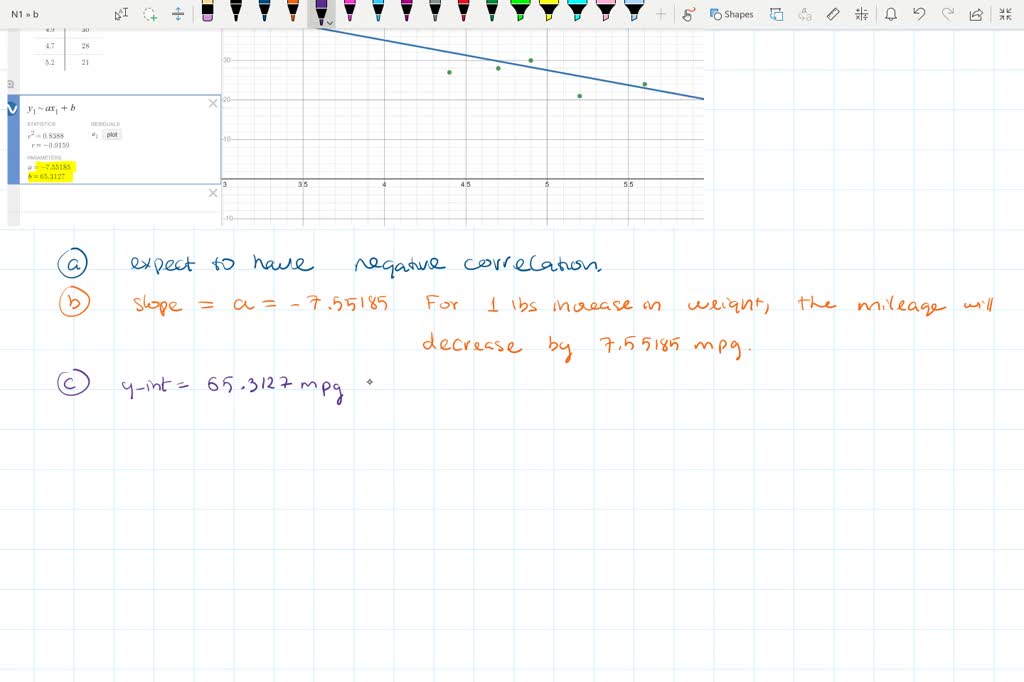 N1 » b
Shapes
4.9 30
4.7 28
5.2 21
y₁ ~ ax₁ + b
STATISTICS RESIDUALS
r² = 0.8388 e₁ plot
r = −0.9159
PARAMETERS
a = −7.55185
b = 65.3127
30
20
10
3 3.5 4 4.5 5 5.5
-10
(a) expect to have negative correlation.
(b) slope = a = -7.55185 For 1 lbs increase in weight, the mileage will
decrease by 7.55185 mpg.
(c) y-int = 65.3127 mpg